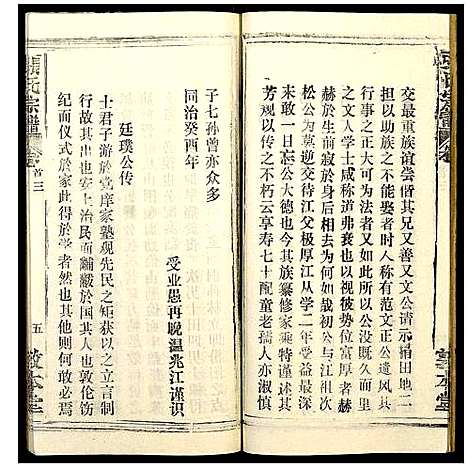 交最重族谊尝偕其兄又善文公请示捐田地二
以助族之不能娶者时人称有范文正公遗风其
行事之正大可为法者又如此然公没既久而里
文人学士咸称道弗衰也以视彼势位富厚者赫
赫于前寂于身后相去为何如哉初公与兆江先生
松公为莫逆交待江父极厚江从学二年受益最深
未敢一日忘公大德也今其族纂修家乘特谨述其
芳规以传之不朽云享寿七十配童老孺人亦淑慎
子七孙曾亦众多
同治癸酉年
受业愚再晚温兆江谨识
廷璞公传
士君子游於黉庠家塾观先民之矩获以之立言制
行故其出也安上治民而黼黻於国其人也敦伦饬
纪而仪式於家此得於学者然也其何敢必焉
张氏宗谱
卷首三
五
敦本堂